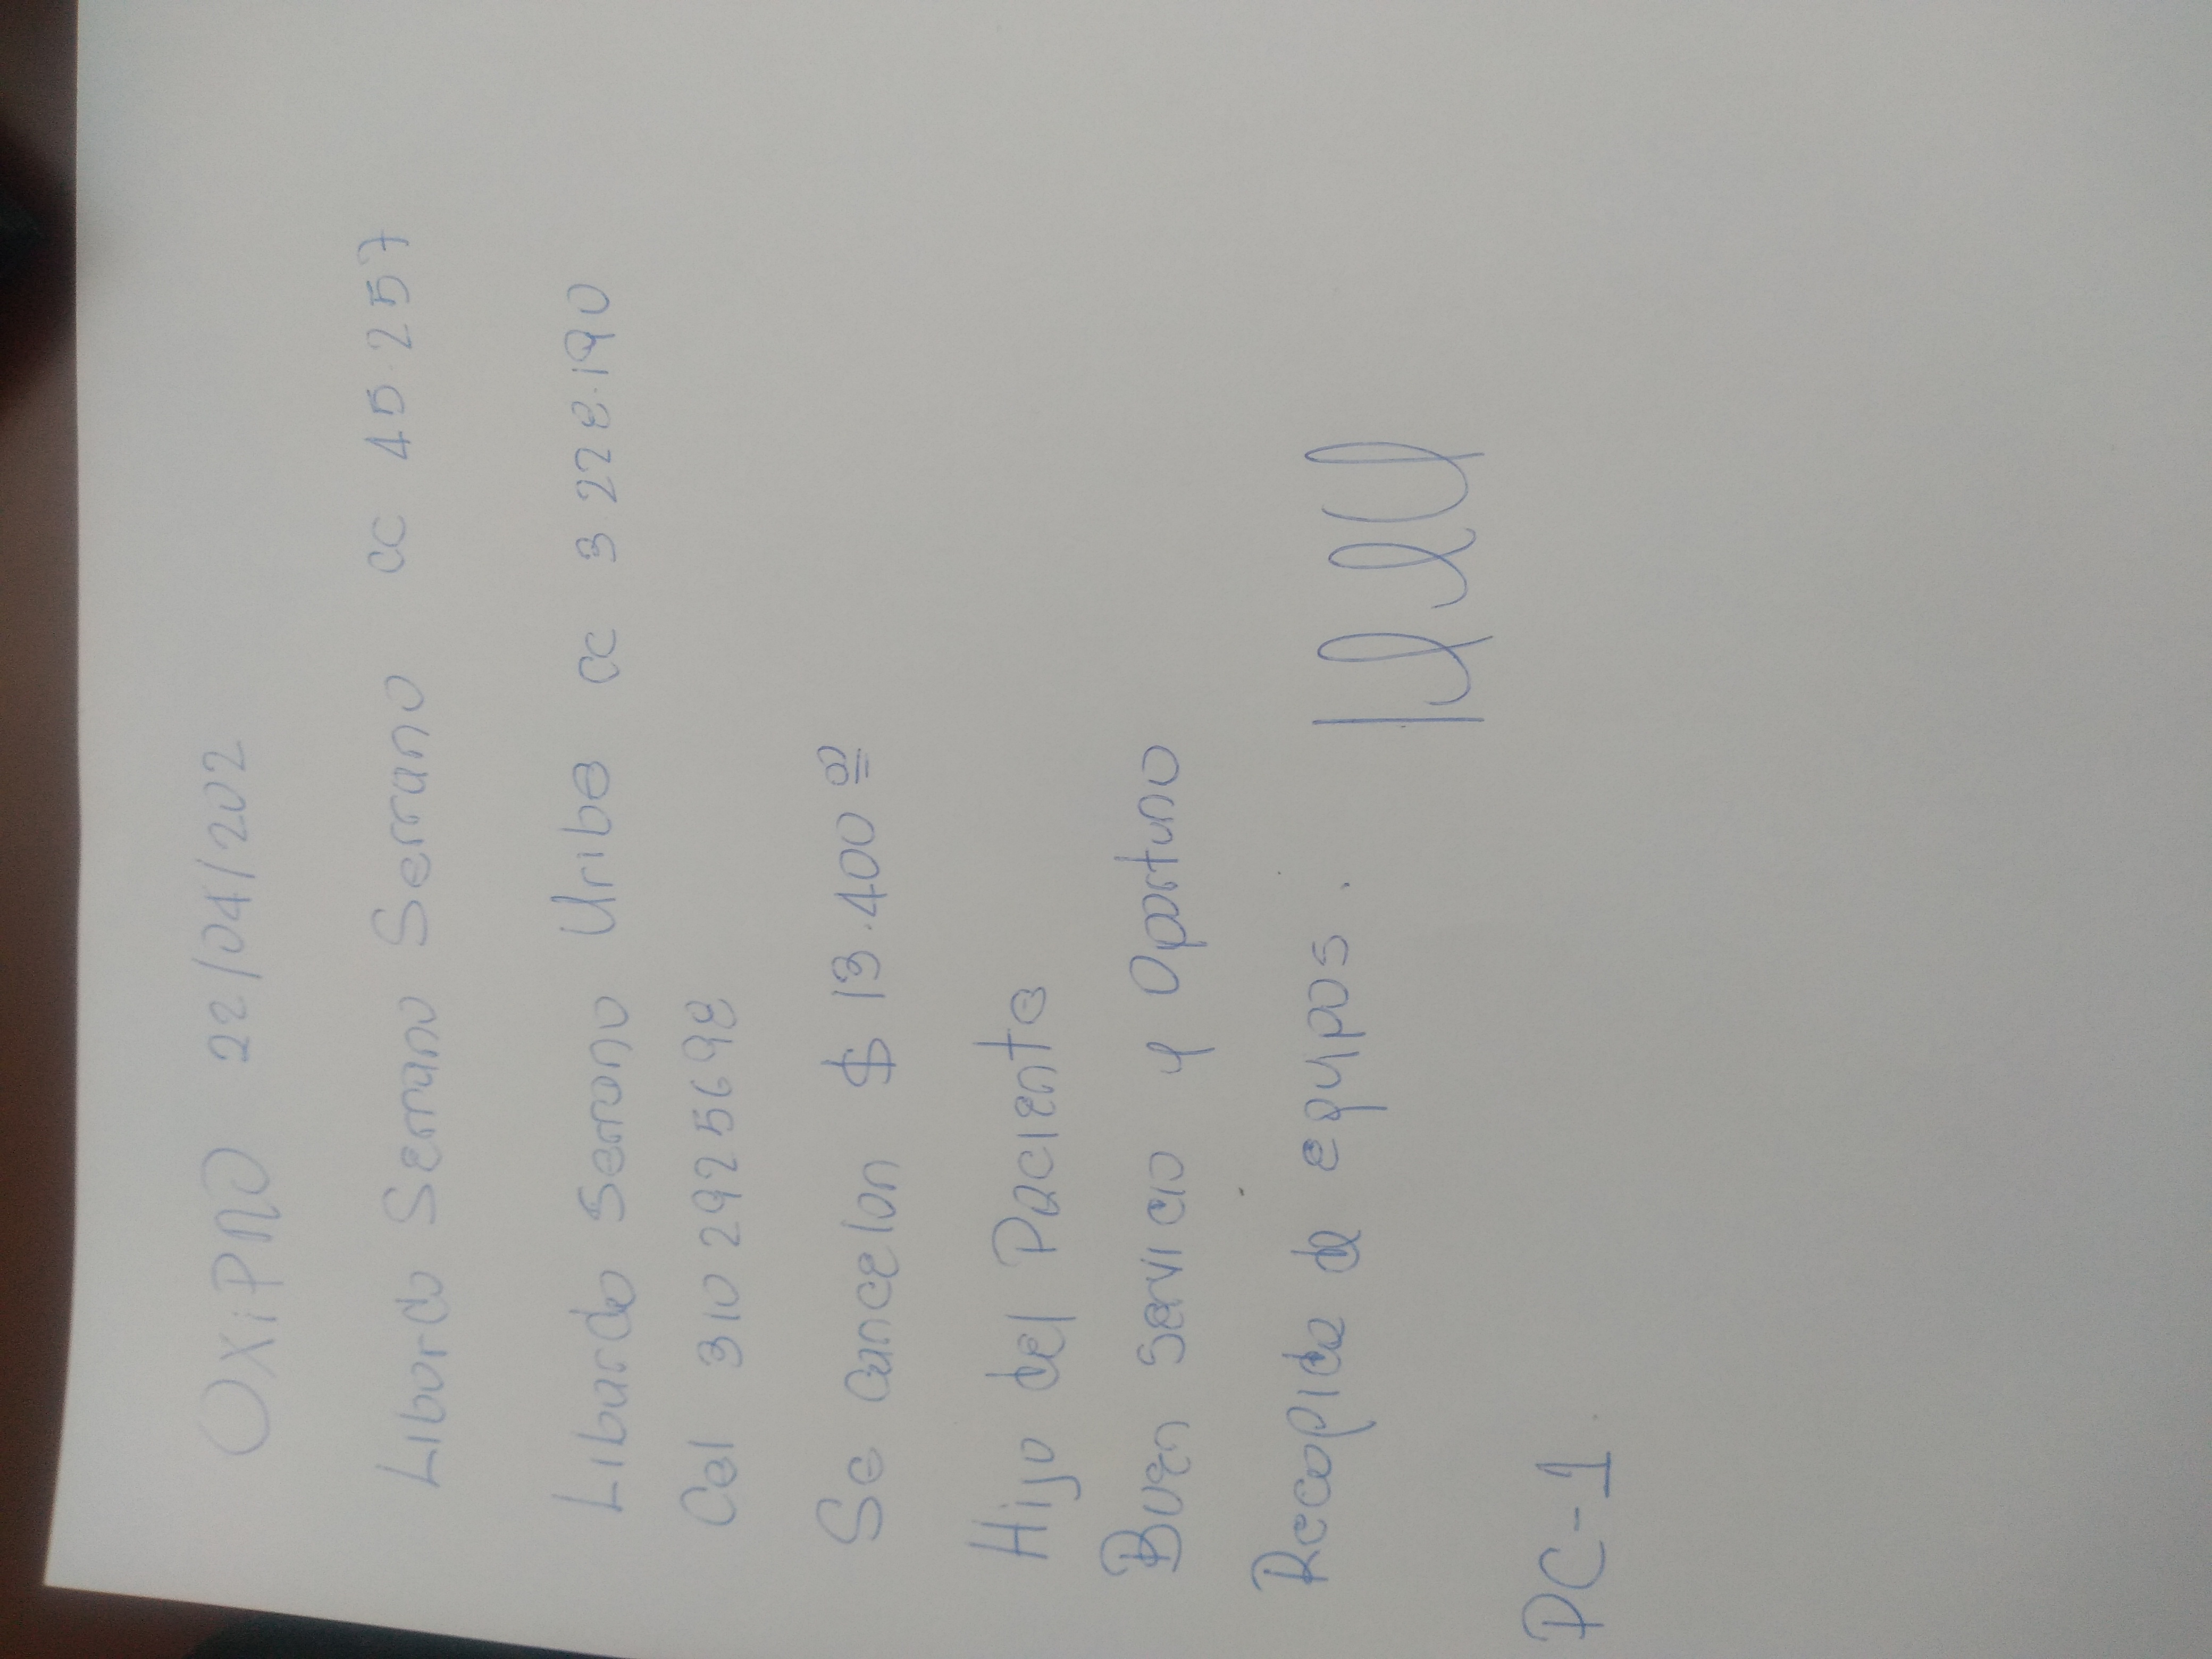 OXiPRO 22/04/202
Libardo Serrano Serrano cc 45.257
Libardo Serrano Uribe cc 3 228.190
Cel 310 2925698
Se cancelan $ 13.400 00
Hijo del Paciente
Buen servicio y Oportuno
Recogida de equipos.
PC-1